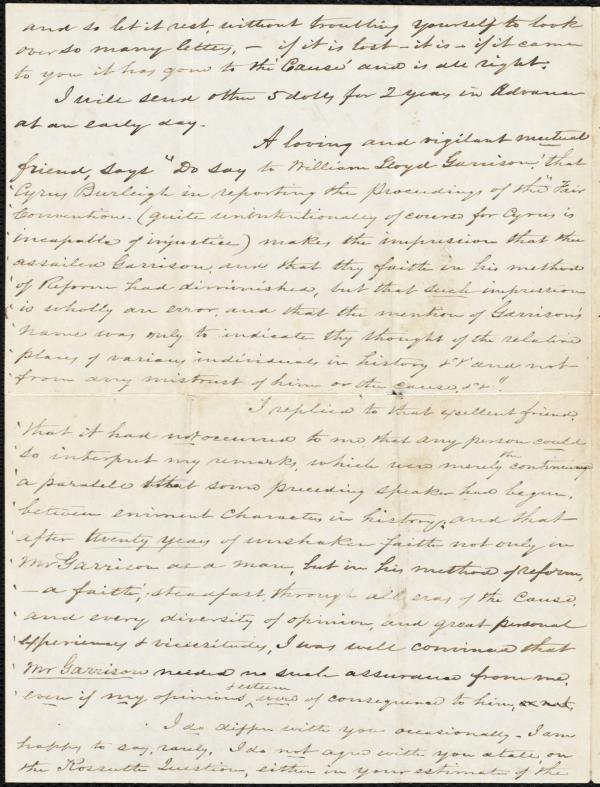 and so let it rest, without troubling yourself to look
over so many letters, – if it is lost – it is – if it came
to you it has gone to the 'Cause' and is all right.
I will send other 5 dolls for 2 years in Advance
at an early day.
A loving and vigilant mutual
friend, says "Do say to William Lloyd Garrison, that
'Cyrus Burleigh in reporting the proceedings of the "Fair
'Convention. (quite unintentionally of course for Cyrus is
'incapable of injustice) makes the impression that thee
'assailed Garrison, and that thy faith in his method
'of Reform had diminished, but that such impression
'is wholly an error, and that the mention of Garrison's
'name was only to indicate thy thought of the relative
'places of various individuals in history &c and not
'from any mistrust of him or the cause, &c."
'I replied' to that excellent friend,
'that it had not occurred to me that any person could
'so interpret my remarks, which were merely the continuing
'a parallel that some preceding speaker had begun,
'between eminent characters in history, and that
'after twenty years of unshaken faith not only in
'Mr Garrison as a man, but in his method of reform,
'– a faith, steadfast through all eras of the Cause,
'and every diversity of opinion, and great personal
'experiences & vicissitudes, I was well convinced that
'Mr Garrison needed no such assurance from me,
'even if my opinions & esteem were of consequence to him, or not,
I do differ with you occasionally – I am
happy to say, rarely. I do not agree with you at all, on
the Kossuth Question, either in your estimate of the